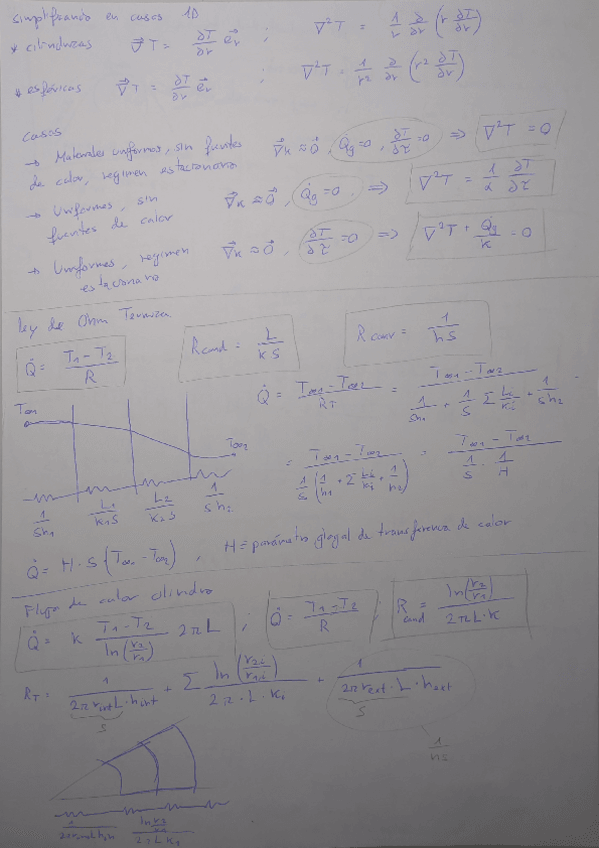 simplificando en casos 1D
* cilíndricas ∇⃗T = ∂T/∂r e⃗r ; ∇²T = 1/r ∂/∂r (r ∂T/∂r)
* esféricas ∇⃗T = ∂T/∂r e⃗r ; ∇²T = 1/r² ∂/∂r (r² ∂T/∂r)
Casos
→ Materiales uniformes, sin fuentes
de calor, regimen estacionario ∇⃗k ≈ 0⃗, Q̇g = 0, ∂T/∂τ = 0 ⇒ ∇²T = 0
→ Uniformes, sin
fuentes de calor ∇⃗k ≈ 0⃗, Q̇g = 0 ⇒ ∇²T = 1/α ∂T/∂τ
→ Uniformes, regimen
estacionario ∇⃗k ≈ 0⃗, ∂T/∂τ = 0 ⇒ ∇²T + Q̇g/k = 0
Ley de Ohm Termica
Q̇ = T1 - T2 / R Rcond = L / k S Rconv = 1 / h S
Q̇ = T∞1 - T∞2 / RT = T∞1 - T∞2 / 1/Sh1 + 1/S Σ Li/ki + 1/Sh2
T∞1
T∞2
= T∞1 - T∞2 / 1/S (1/h1 + Σ Li/ki + 1/h2) = T∞1 - T∞2 / 1/S · 1/H
1/Sh1 L1/k1S L2/k2S 1/Sh2
Q̇ = H · S (T∞1 - T∞2) , H = parámetro glogal de transferencia de calor
Flujo de calor cilindro
Q̇ = k T1 - T2 / ln(r2/r1) 2πL ; Q̇ = T1 - T2 / R ; Rcond = ln(r2/r1) / 2πL·k
RT = 1 / 2πrintL·hint + Σ ln(r2i/r1i) / 2π·L·ki + 1 / 2πrext·L·hext
S S
1/hS